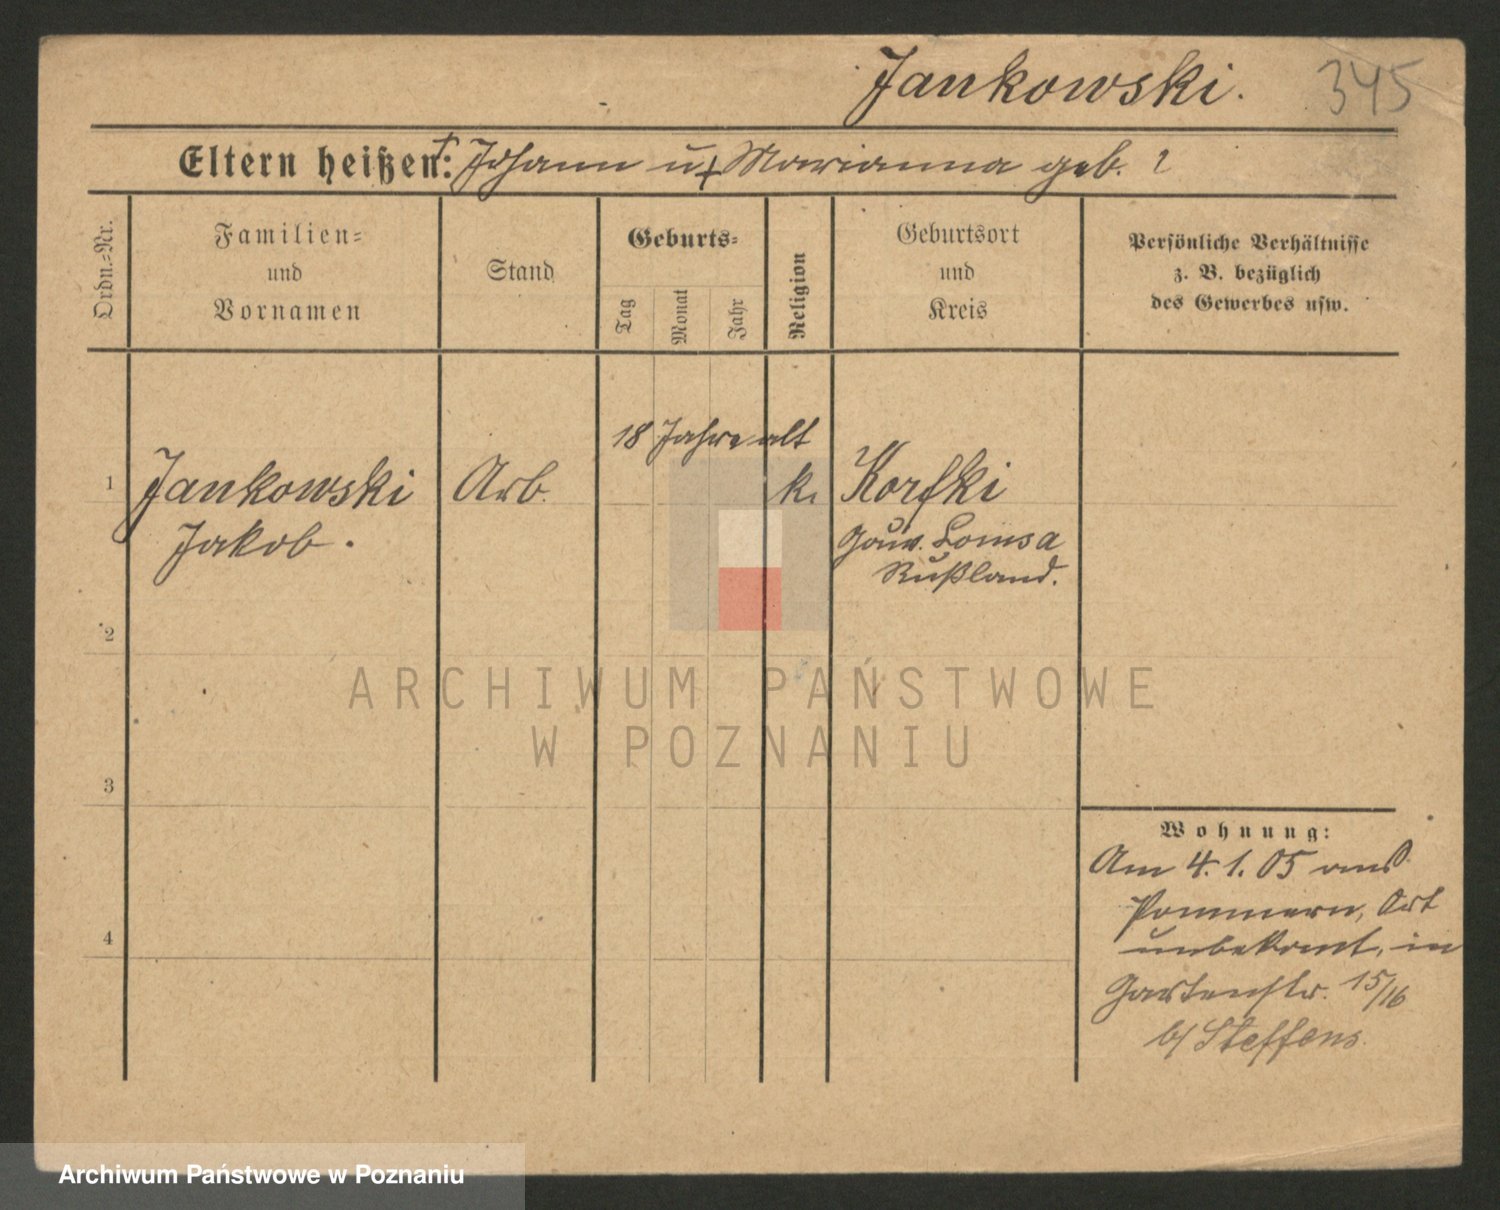 Jankowski. 345
Eltern heißen: † Johann u. † Marianna geb. ?
Ordn.-Nr.
Familien-
und
Vornamen
Stand
Geburts-
Tag
Monat
Jahr
Religion
Geburtsort
und
Kreis
Persönliche Verhältnisse
z. B. bezüglich
des Gewerbes usw.
18 Jahre alt
1 Jankowski Arb. k. Korfki
Jakob. Gouv. Lomsa
Rußland.
2
ARCHIWUM PAŃSTWOWE
W POZNANIU
3
Wohnung:
Am 4.1.05 aus
Pommern, Ort
4 unbekannt, in
Gartenstr. 15/16
b/ Steffens
Archiwum Państwowe w Poznaniu